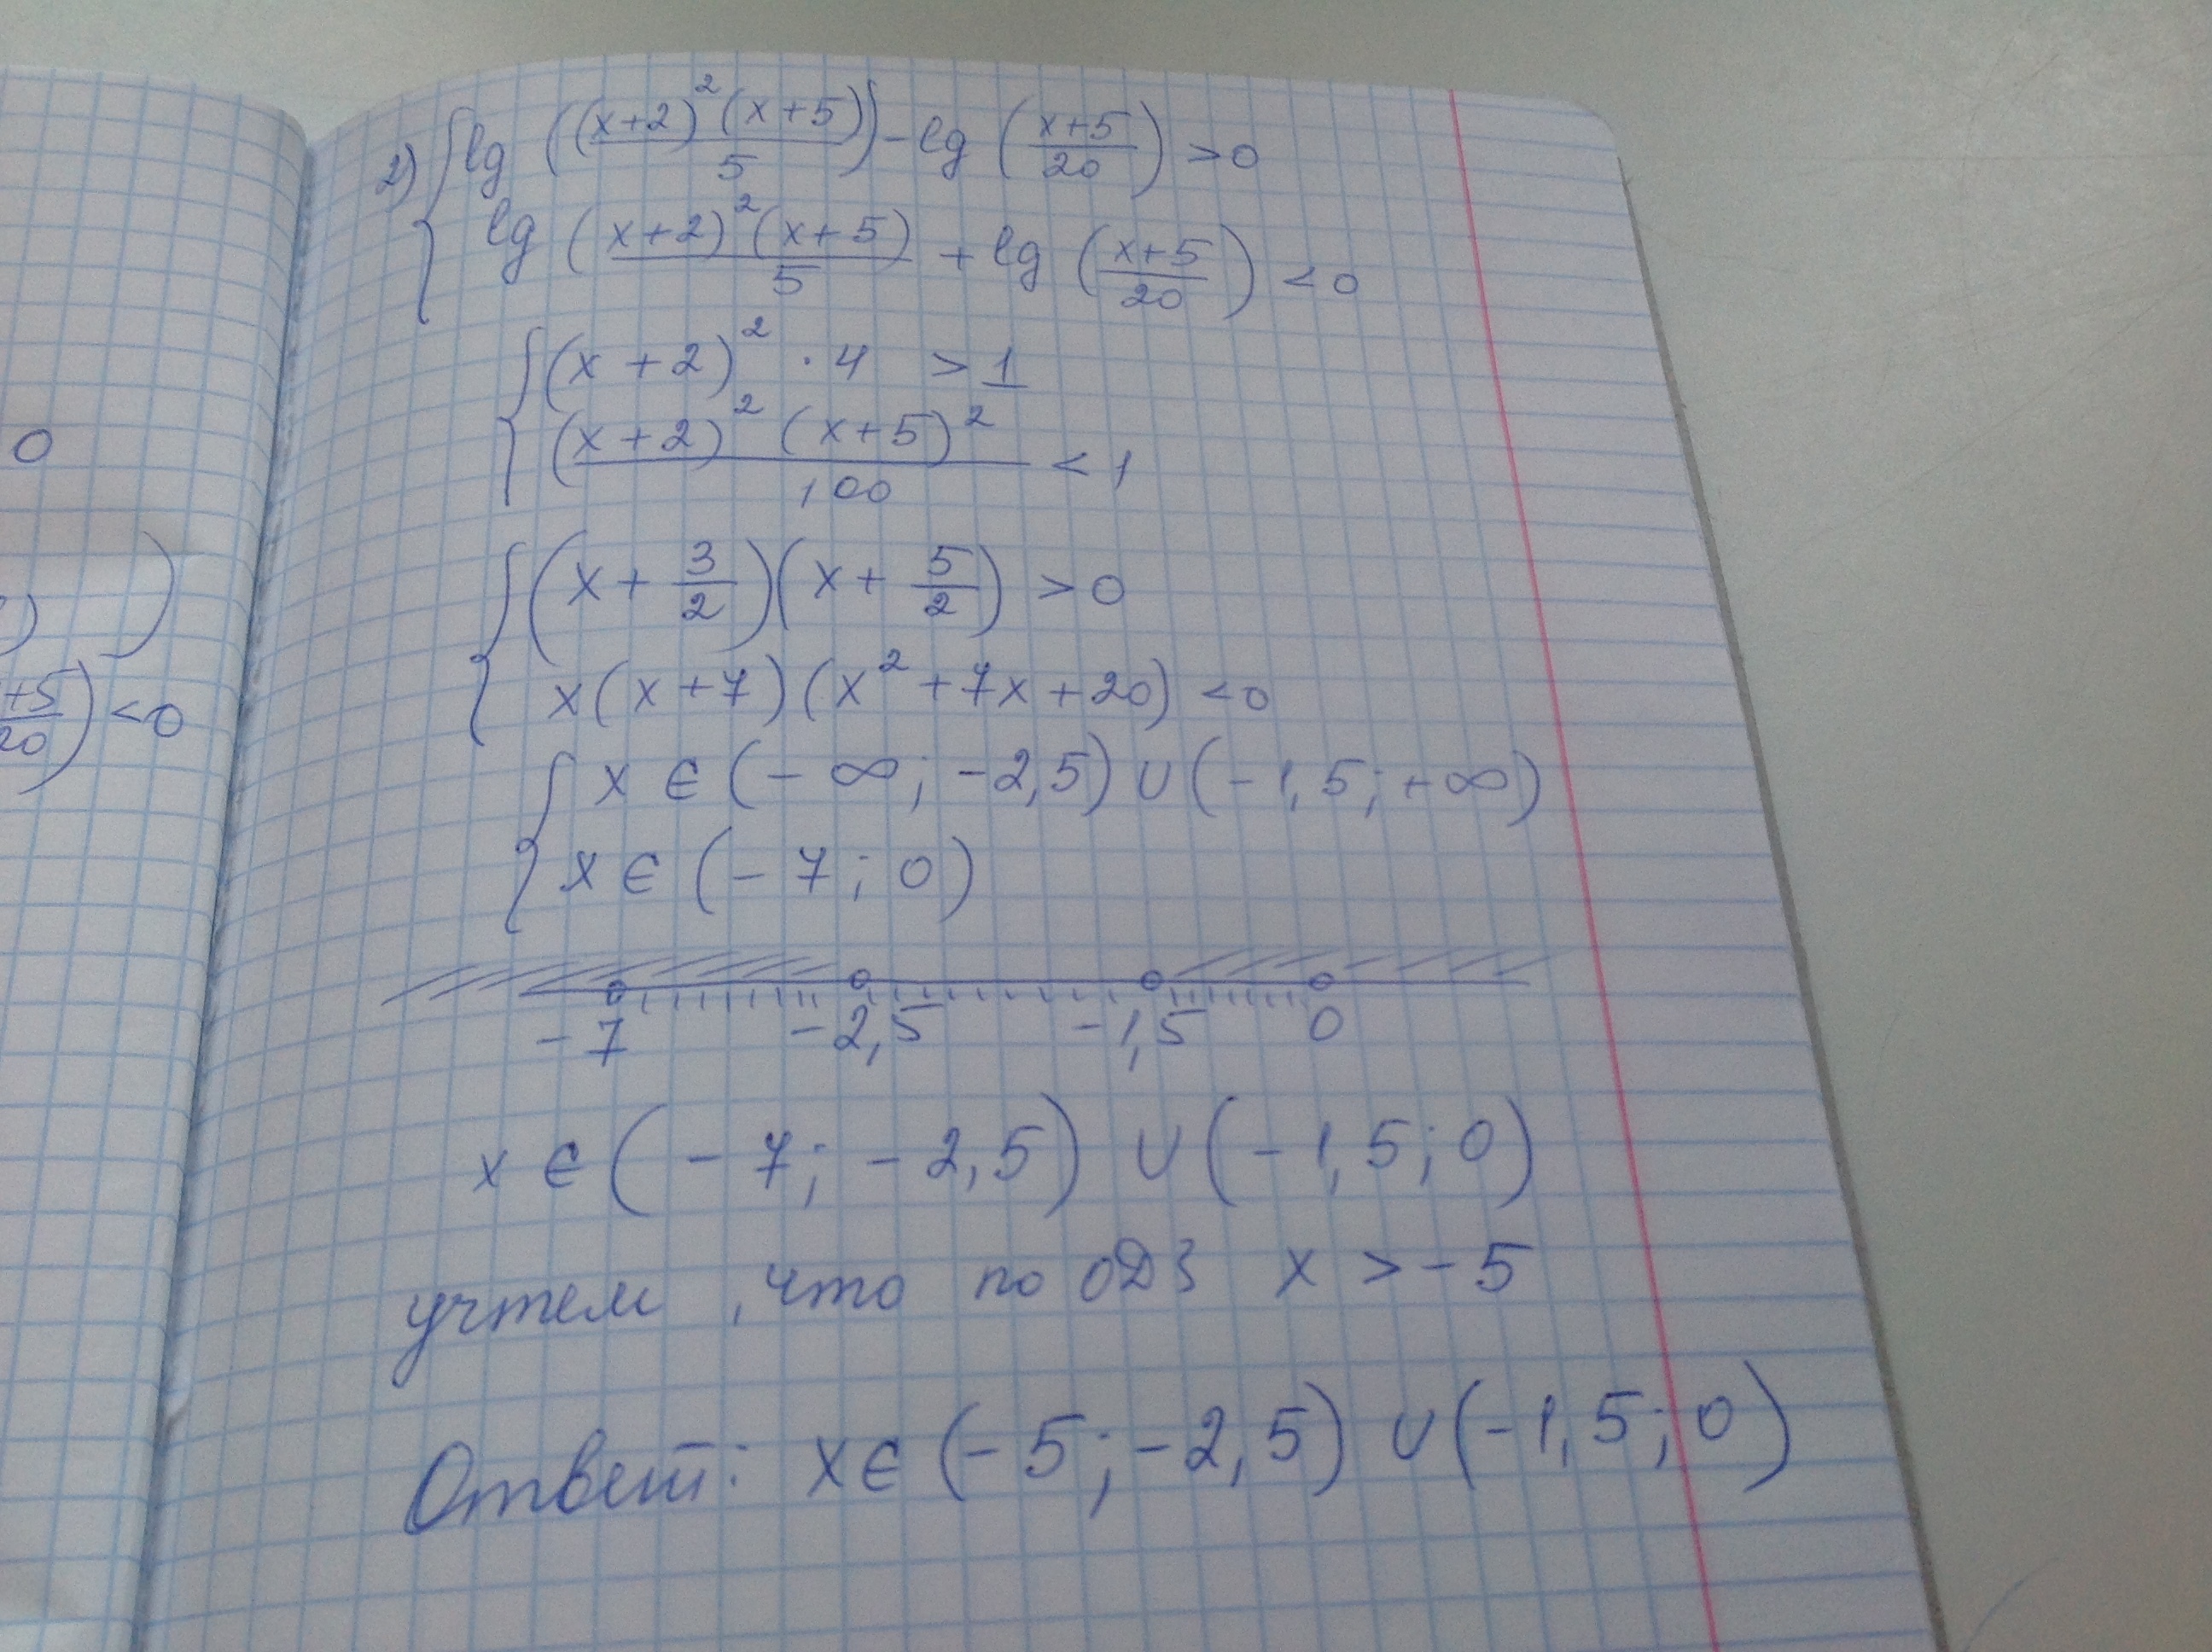 0
)
)
+5)/20) < 0
2) { lg ((x+2)² (x+5)/5) - lg ((x+5)/20) > 0
lg ((x+2)² (x+5)/5 + lg ((x+5)/20) < 0
{ (x+2)² · 4 > 1
(x+2)² (x+5)²/100 < 1
{ (x + 3/2)(x + 5/2) > 0
x(x+7)(x²+7x+20) < 0
{ x ∈ (-∞; -2,5) ∪ (-1,5; +∞)
x ∈ (-7; 0)
-7 -2,5 -1,5 0
x ∈ (-7; -2,5) ∪ (-1,5; 0)
учтем, что по ОДЗ x > -5
Ответ: x ∈ (-5; -2,5) ∪ (-1,5; 0)